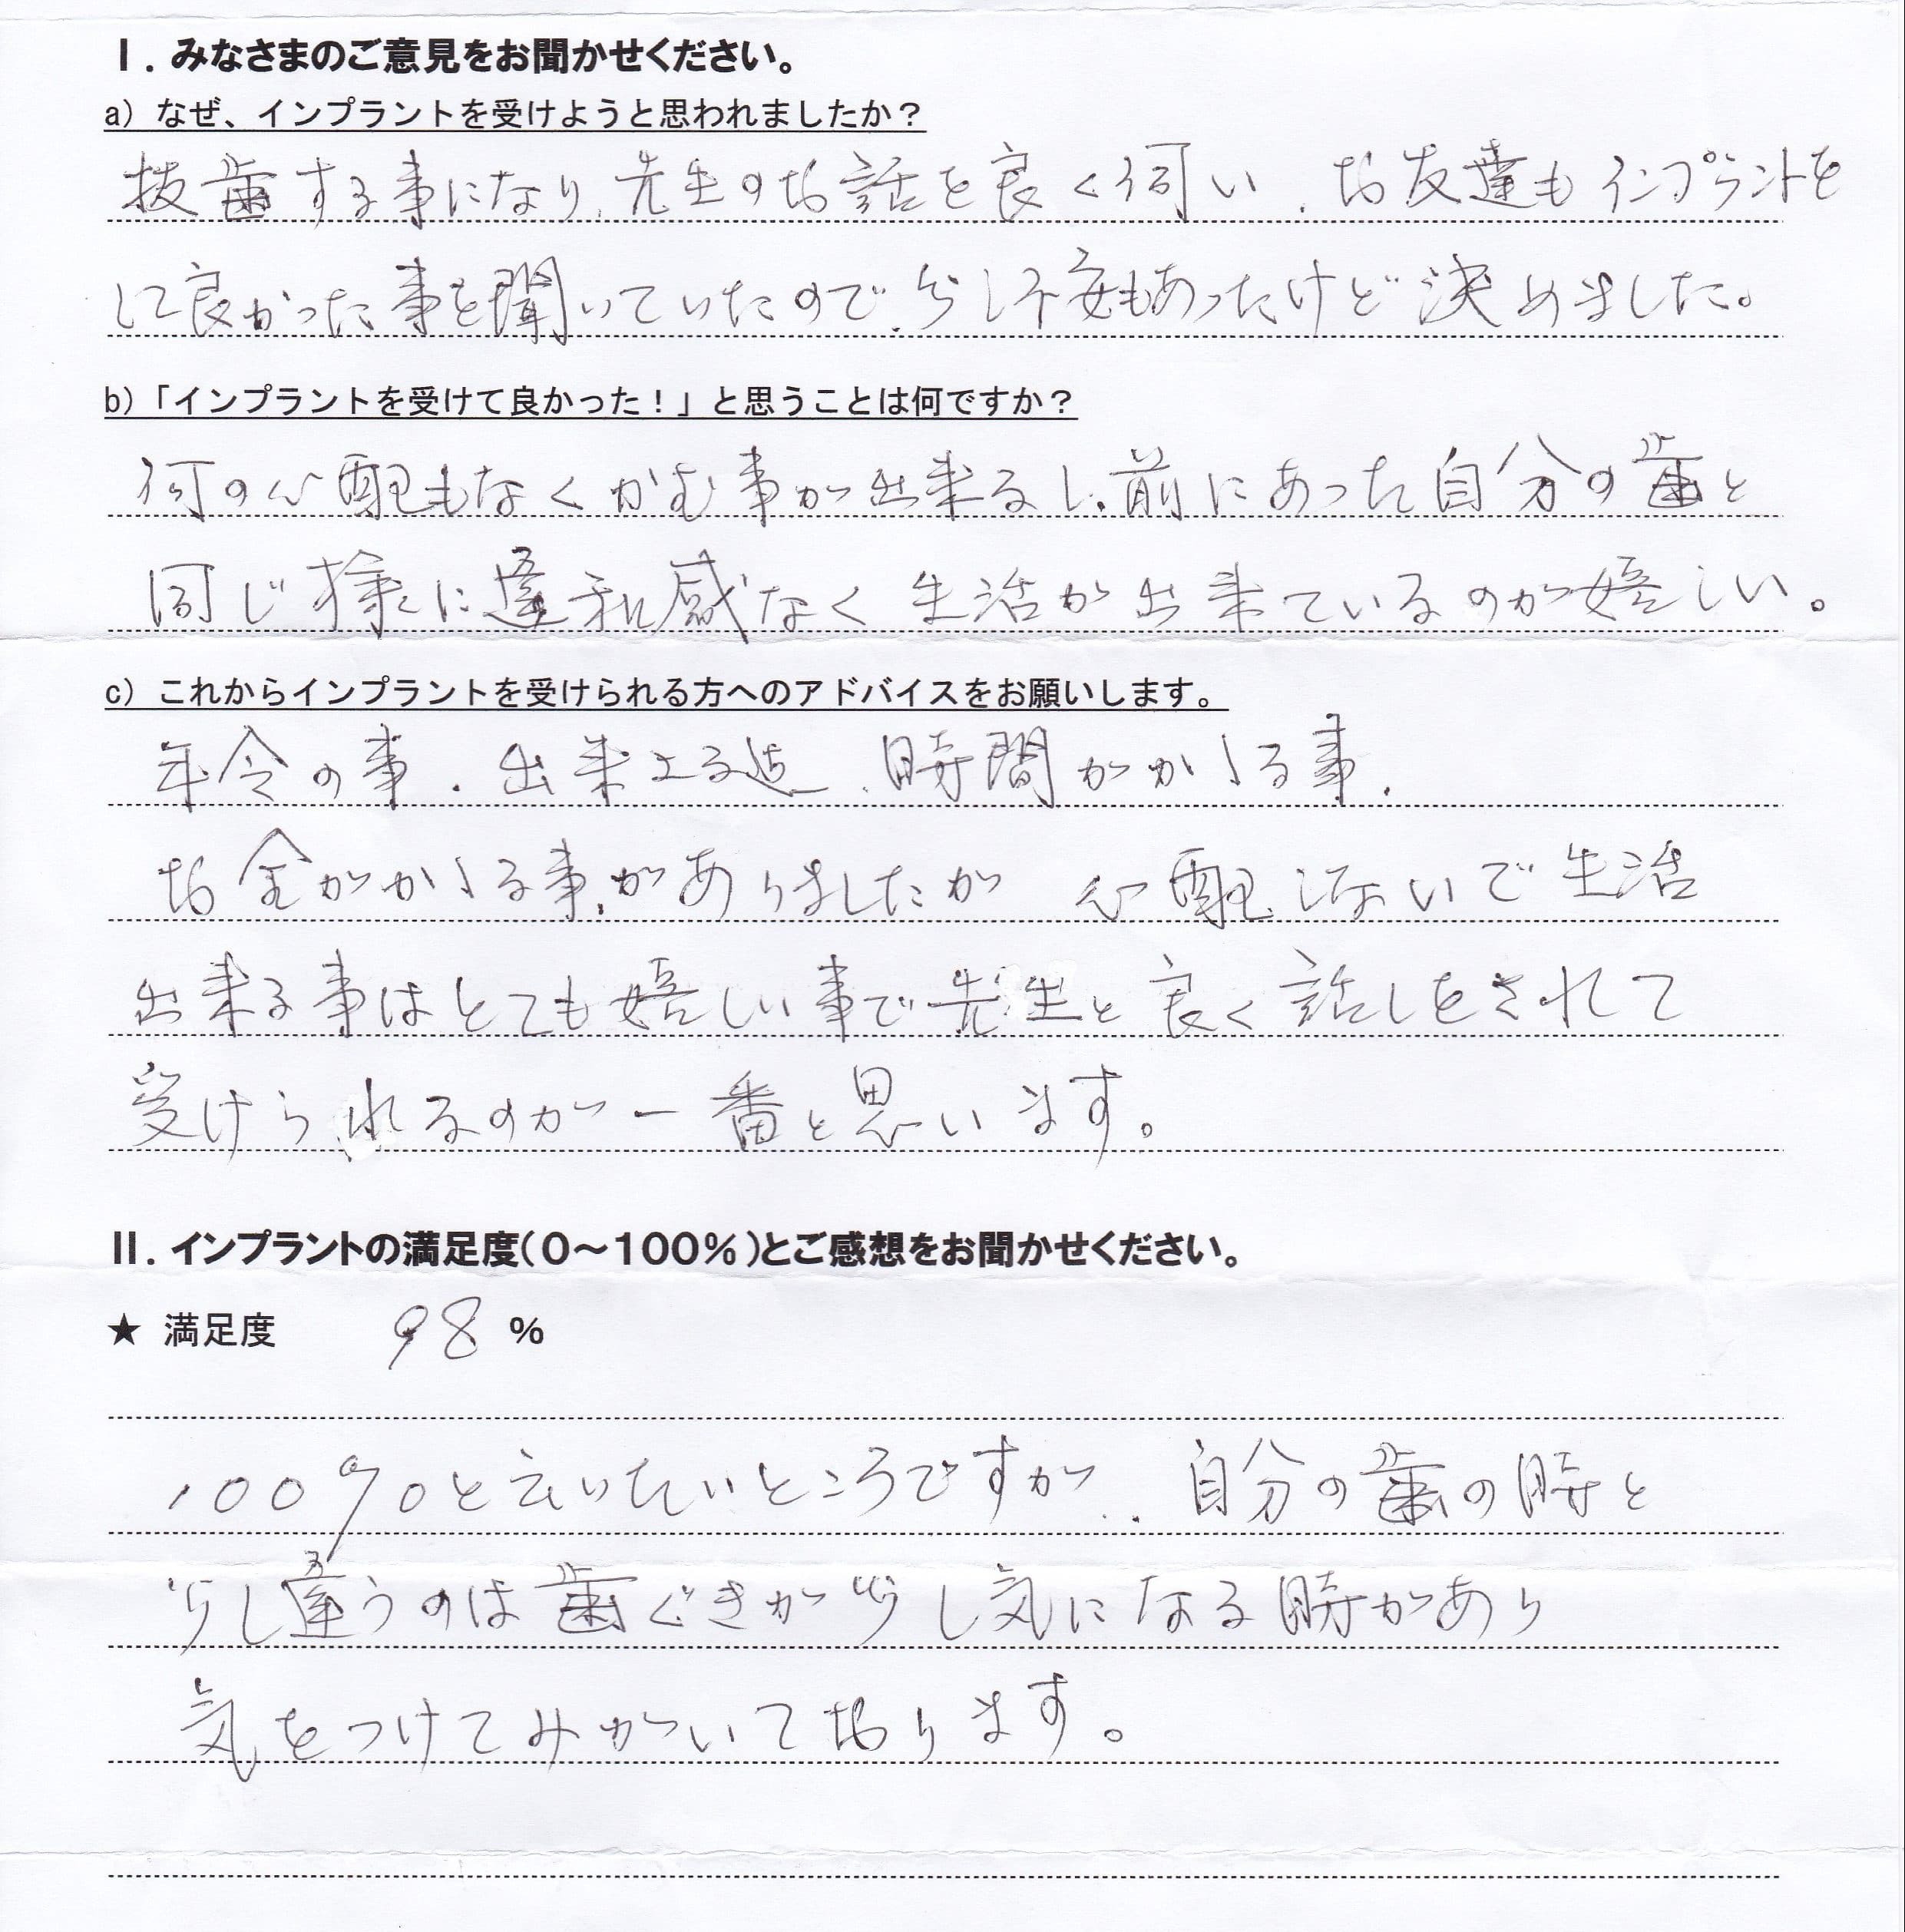 Ⅰ. みなさまのご意見をお聞かせください。
a) なぜ、インプラントを受けようと思われましたか？
抜歯する事になり、先生のお話を良く伺い、お友達もインプラントを
して良かった事を聞いていたので、少し不安もあったけど決めました。
b)「インプラントを受けて良かった！」と思うことは何ですか？
何の心配もなくかむ事が出来るし、前にあった自分の歯と
同じ様に違和感なく生活が出来ているのが嬉しい。
c) これからインプラントを受けられる方へのアドバイスをお願いします。
年令の事、出来上る迄、時間がかかる事、
お金がかかる事、がありましたが 心配しないで生活
出来る事はとても嬉しい事で先生と良く話しをされて
受けられるのが一番と思います。
Ⅱ. インプラントの満足度(0～100%)とご感想をお聞かせください。
★ 満足度 98 %
100%と云いたいところですが、、自分の歯の時と
少し違うのは歯ぐきが少し気になる時があり
気をつけてみがいております。